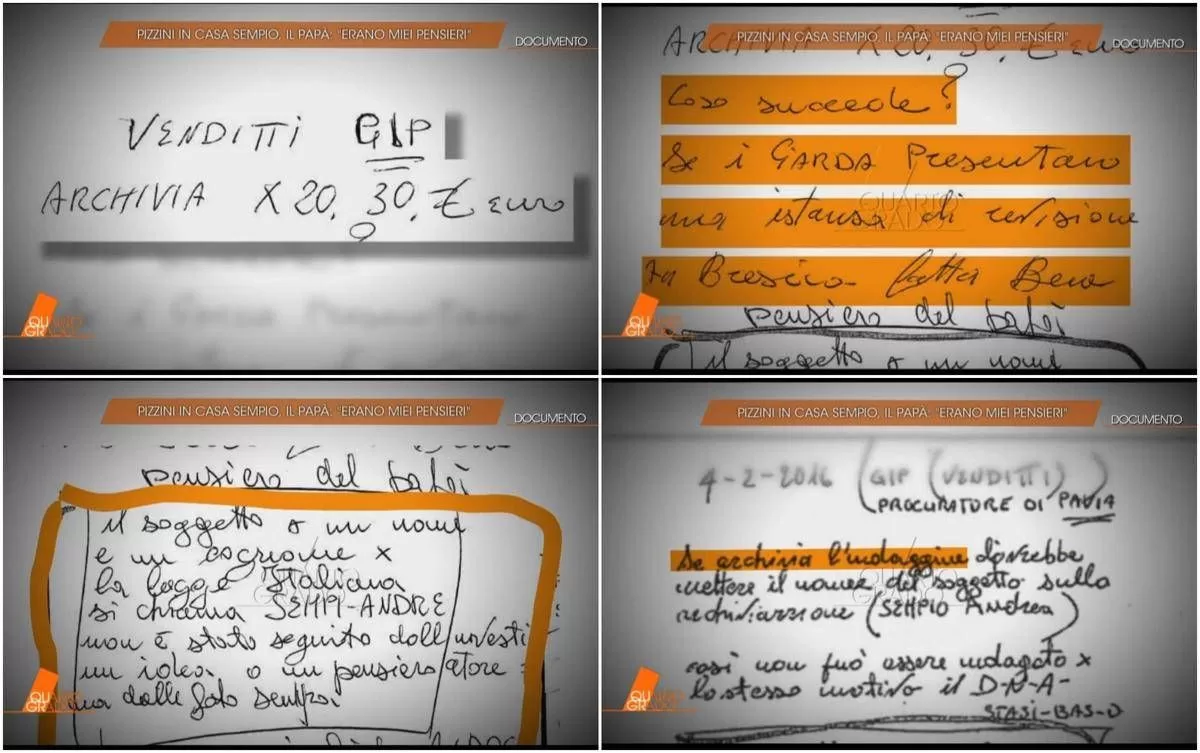 PIZZINI IN CASA SEMPIO, IL PAPÀ: "ERANO MIEI PENSIERI"
DOCUMENTO
VENDITTI GIP
ARCHIVIA X 20. 30. € euro
QUARTO
GRADO
PIZZINI IN CASA SEMPIO, IL PAPÀ: "ERANO MIEI PENSIERI"
DOCUMENTO
ARCHIVIA X 20. 30. € euro
Cosa succede?
Se i GARDA Presentano
una istansa di revisione
a Brescia fatta Bene
pensiero del
il soggetto a un nome
QUARTO
GRADO
QUARTO
GRADO
PIZZINI IN CASA SEMPIO, IL PAPÀ: "ERANO MIEI PENSIERI"
DOCUMENTO
pensiero del
il soggetto a un nome
e un cognome x
la legge Italiana
si chiama SEMPI-ANDRE
non è stato seguito dall investi
un idea o un pensiero atore
ma dalle foto
QUARTO
GRADO
PIZZINI IN CASA SEMPIO, IL PAPÀ: "ERANO MIEI PENSIERI"
DOCUMENTO
4-2-2016 (GIP (VENDITTI)
PROCURATORE DI PAVIA
Se archivia l'indaggine dovrebbe
mettere il nome del soggetto sulla
(SEMPIO Andrea)
così non può essere indagato x
lo stesso motivo il D-N-A-
STASI-BAS-O
QUARTO
GRADO